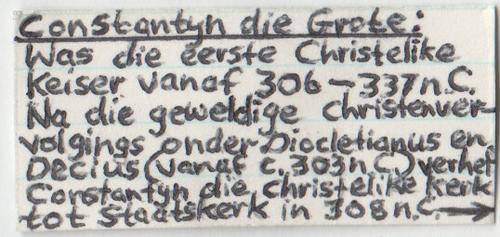 Constantyn die Grote:
Was die eerste Christelike
Keiser vanaf 306 – 337 n.C.
Na die geweldige Christenver-
volgings onder Diocletianus en
Decius (vanaf c. 303 n C.) verhef
Constantyn die Christelike kerk
tot Staatskerk in 308 n.C. →